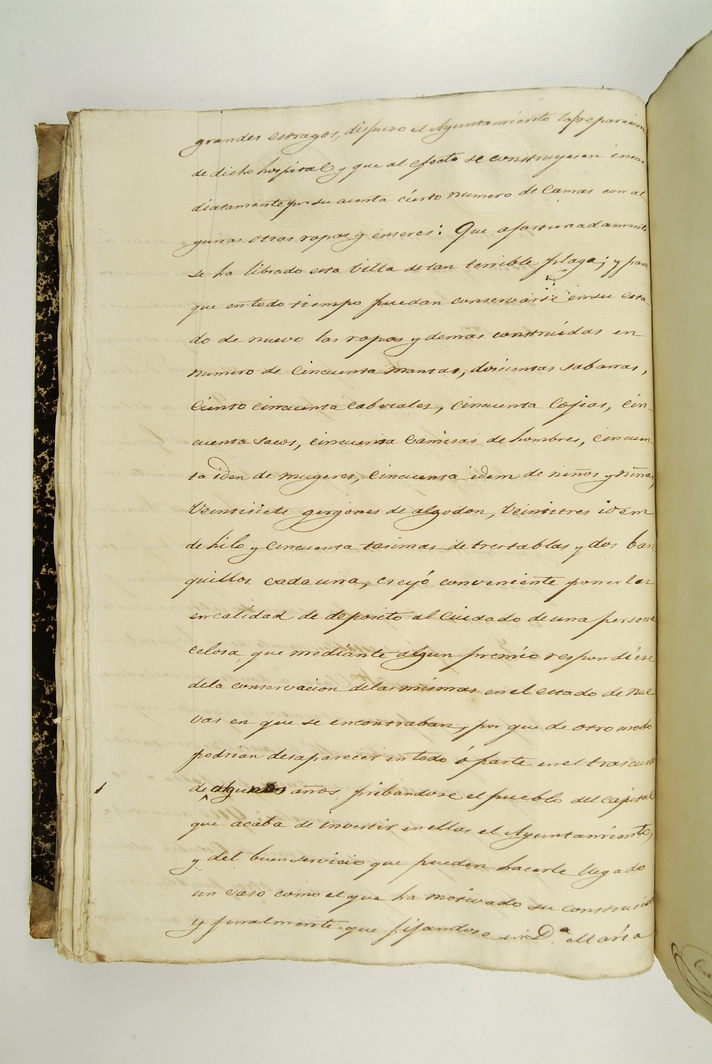 grandes estragos, dispuso el Ayuntamiento la preparacion
de dicho hospital y que al efecto se construyesen inme-
diatamente por su cuenta cierto numero de Camas con al
gunas otras ropas y enseres: Que afortunadamente
se ha librado esta Villa de tan terrible plaga; y para
que en todo tiempo puedan conservarse en su esta-
do de nuevo las ropas y demas construidas en
numero de Cincuenta mantas, doscientas sabanas,
Ciento cincuenta Cabezales, Cincuenta Cojias, Cin-
cuenta Sacos, Cincuenta Camisas de hombres, Cincuen
ta iden de mugeres, Cincuenta idem de niños y niñas,
Veintisiete gergones de algodon, Veintitres idem
de hilo y Cincuenta tarimas de tres tablas y dos ban
quillos cada una, creyó conveniente poner las
en calidad de deposito al Cuidado de una persona
celosa que mediante algun premio respondiese
de la conservacion de las mismas en el estado de nue
vas en que se encontraban, por que de otro modo
podrian desaparecer en todo ó parte en el trascurso
de algunos años pribandose el pueblo del Capital
que acaba de invertir en ellas el Ayuntamiento,
y del buen servicio que pueden hacerle llegado
un caso como el que ha motivado su construccion
y finalmente que fijandose en D.ª Maria